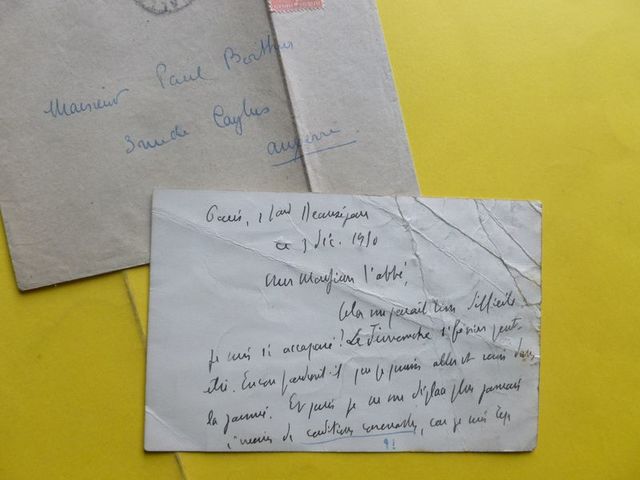 Monsieur Paul Berthier
3 rue de Caylus
Auxerre
Paris, 1 bard Beauséjour
ce 3 déc. 1950
Cher Monsieur l'abbé,
Cela me paraît bien difficile
je suis si accaparé! Le Dimanche 1 février peut-
être. Encore faudrait-il que je puisse aller et venir dans
la journée. Et puis je ne me déplace plus jamais
à moins de conditions convenables, car je suis trop